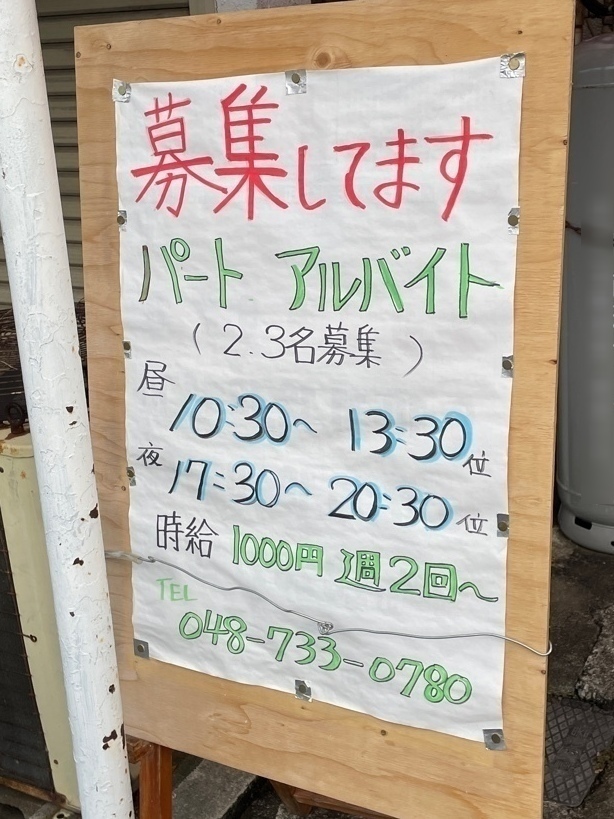 募集してます
パート アルバイト
(2.3名募集)
昼
10:30〜 13:30位
夜
17:30〜20:30位
時給 1000円 週2回〜
TEL
048-733-0780